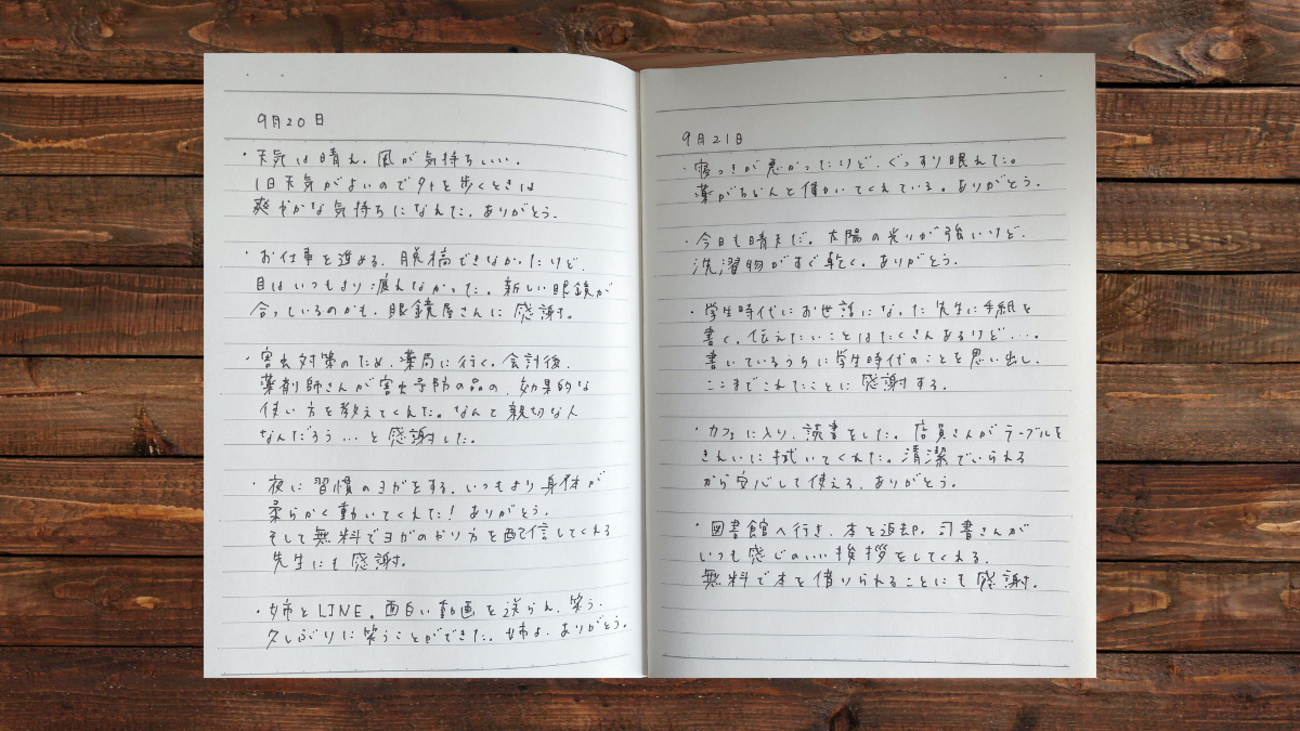 9月20日
・天気は晴れ。風が気持ちいい。
1日天気がよいので外を歩くときは
爽やかな気持ちになれた。ありがとう。
・お仕事を進める。脱稿できなかったけど、
目はいつもより疲れなかった。新しい眼鏡が
合っているのかも。眼鏡屋さんに感謝。
・害虫対策のため、薬局に行く。会計後、
薬剤師さんが害虫予防の品の、効果的な
使い方を教えてくれた。なんて親切な人
なんだろう…と感謝した。
・夜に習慣のヨガをする。いつもより身体が
柔らかく動いてくれた！ありがとう。
そして無料でヨガのやり方を配信してくれる
先生にも感謝。
・姉とLINE。面白い動画を送られ、笑う。
久しぶりに笑うことができた。姉よ、ありがとう。
9月21日
・寝つきが悪かったけど、ぐっすり眠れた。
薬がちゃんと働いてくれている。ありがとう。
・今日も晴れだ。太陽の光りが強いけど、
洗濯物がすぐ乾く。ありがとう。
・学生時代にお世話になった先生に手紙を
書く。伝えたいことはたくさんあるけど…。
書いているうちに学生時代のことを思い出し、
ここまでこれたことに感謝する。
・カフェに入り、読書をした。店員さんがテーブルを
きれいに拭いてくれた。清潔でいられる
から安心して使える。ありがとう。
・図書館へ行き、本を返却。司書さんが
いつも感じのいい挨拶をしてくれる。
無料で本を借りられることにも感謝。